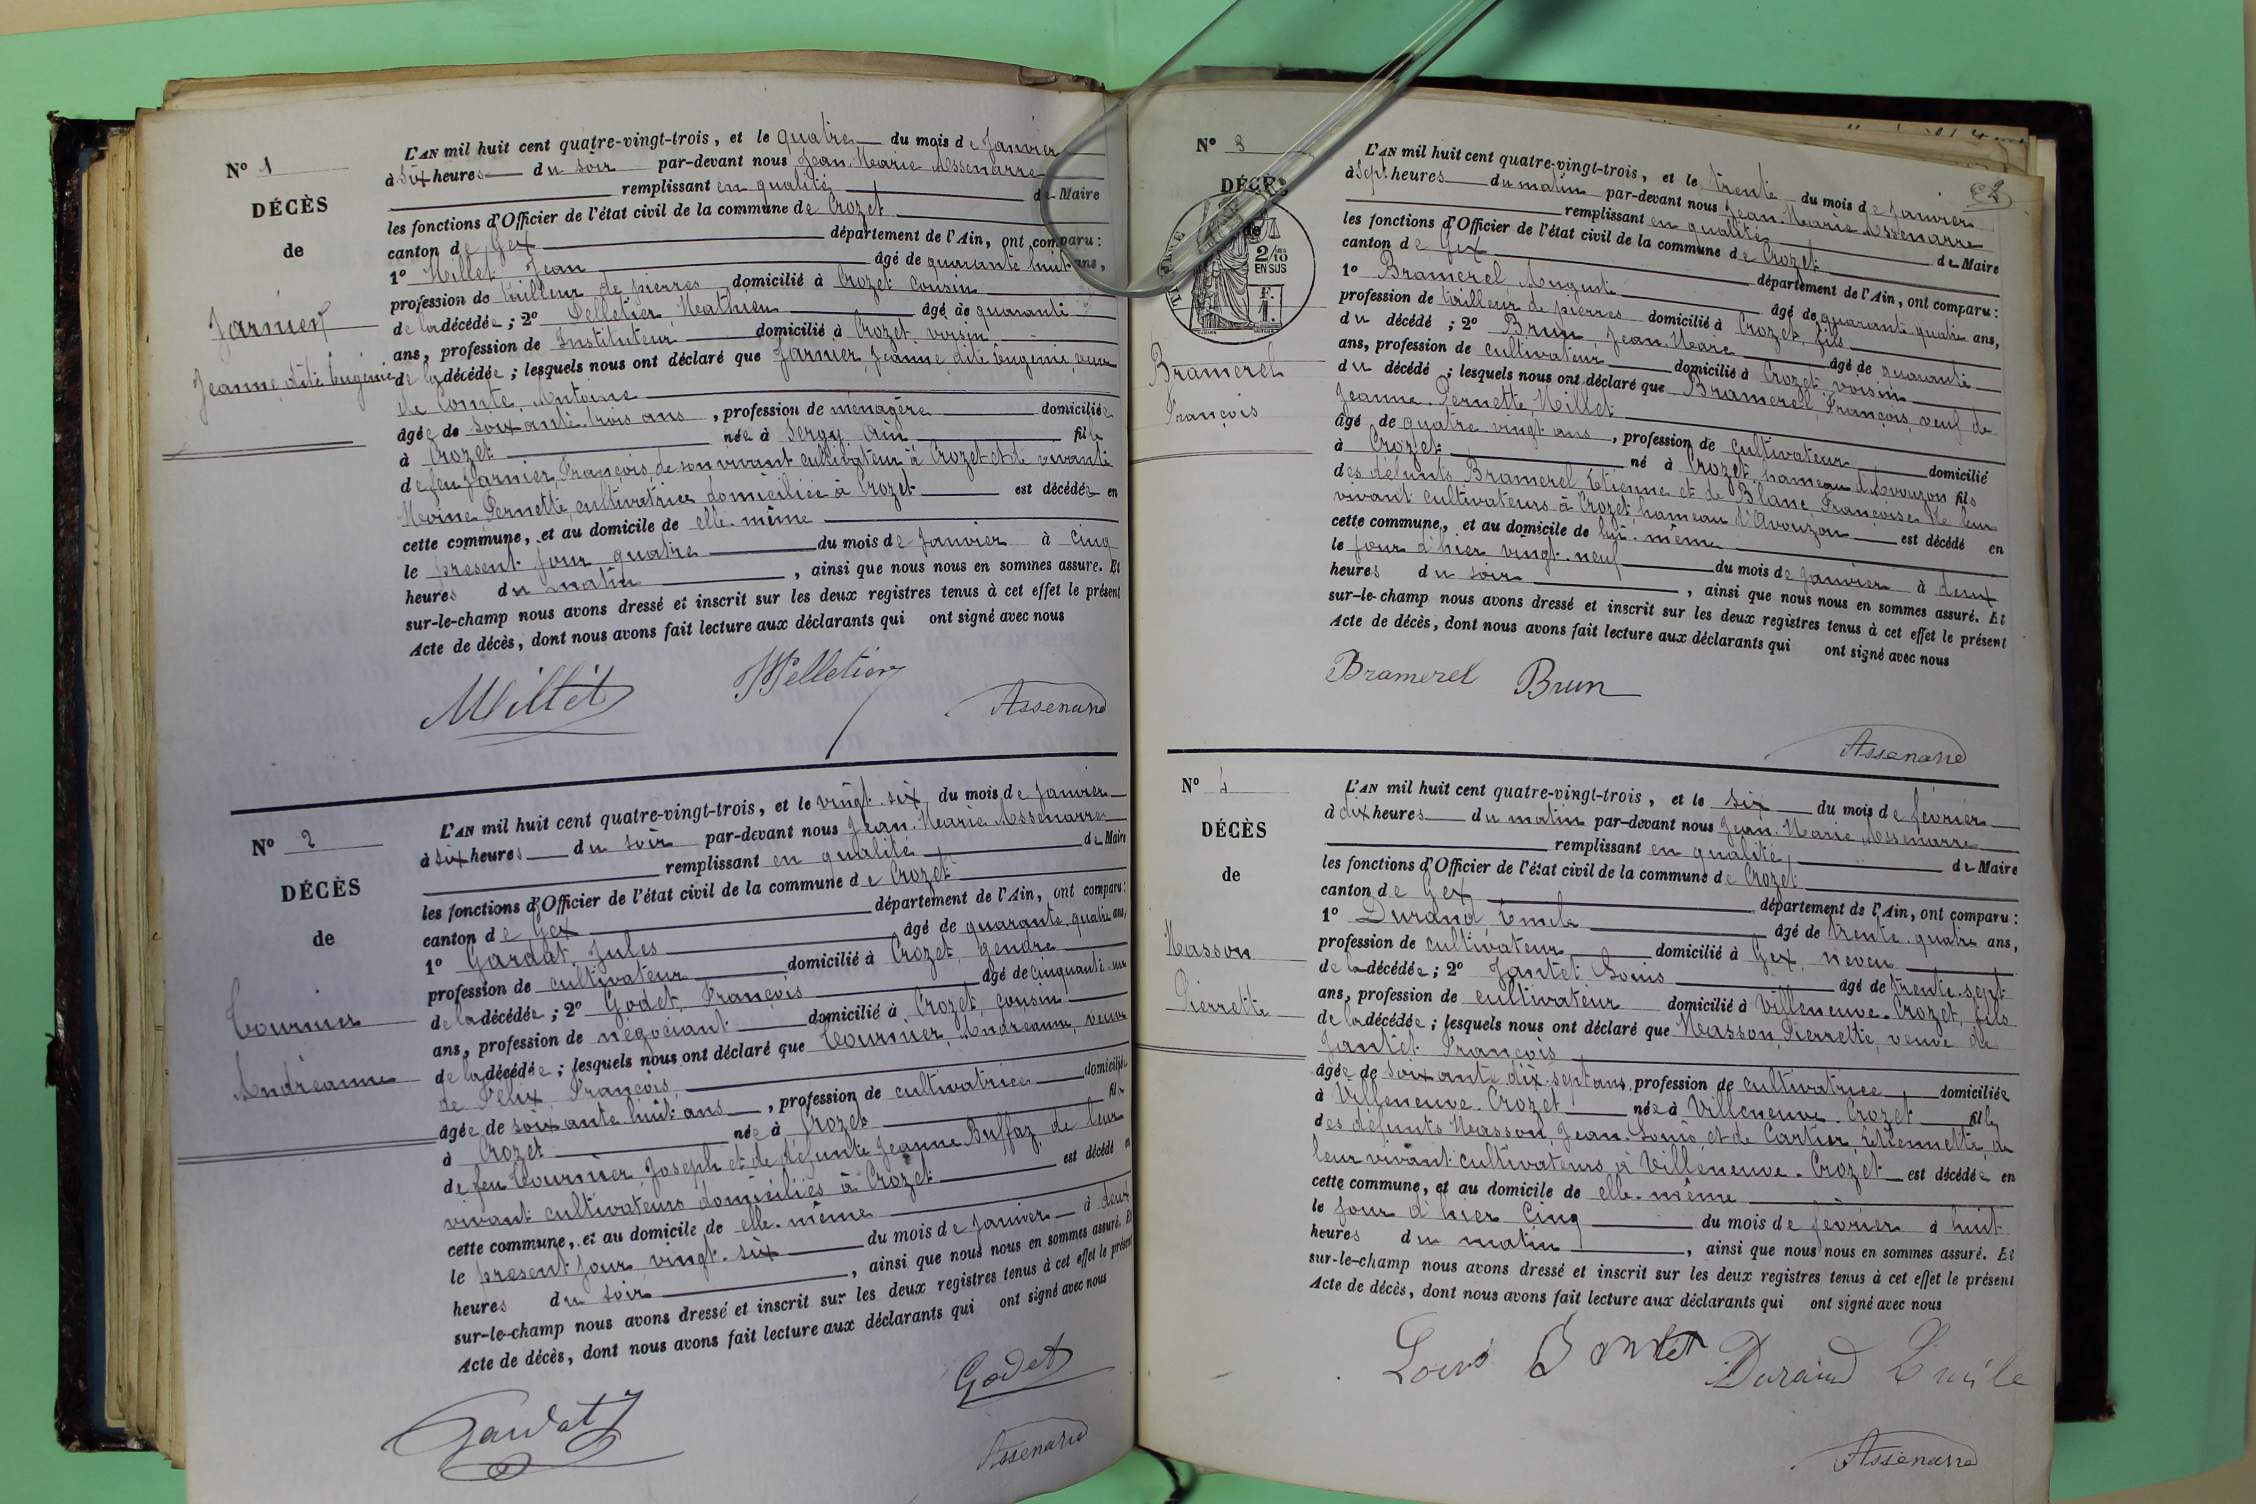 N° 1
DÉCÈS
de
Jarnier
Jeanne dite Eugénie
L'AN mil huit cent quatre-vingt-trois, et le quatre du mois de Janvier
à six heures du soir par-devant nous Jean-Marie Assenarre
remplissant en qualité de Maire
les fonctions d'Officier de l'état civil de la commune de Crozet
canton de Gex département de l'Ain, ont comparu:
1° Millet Jean âgé de quarante huit ans,
profession de tailleur de pierres domicilié à Crozet cousin
de la décédée; 2° Pelletier, Mathieu âgé de quarante
ans, profession de Instituteur domicilié à Crozet, voisin
de la décédée; lesquels nous ont déclaré que Jarnier, Jeanne dite Eugénie, veuve
de Comte, Antoine
âgée de soixante-trois ans, profession de ménagère domiciliée
à Crozet née à Sergy, Ain fille
de feu Jarnier, François, de son vivant cultivateur à Crozet et de vivante
Moine Pernette, cultivatrice domiciliée à Crozet est décédée en
cette commune, et au domicile de elle-même
le présent jour quatre du mois de Janvier à cinq
heures du matin, ainsi que nous nous en sommes assuré. Et
sur-le-champ nous avons dressé et inscrit sur les deux registres tenus à cet effet le présent
Acte de décès, dont nous avons fait lecture aux déclarants qui ont signé avec nous
Millet Pelletier
Assenarre
N° 2
DÉCÈS
de
Tournier
Andréanne
L'AN mil huit cent quatre-vingt-trois, et le vingt-six du mois de Janvier
à six heures du soir par-devant nous Jean-Marie Assenarre
remplissant en qualité de Maire
les fonctions d'Officier de l'état civil de la commune de Crozet
canton de Gex département de l'Ain, ont comparu:
1° Gardat, Jules âgé de quarante-quatre ans,
profession de cultivateur domicilié à Crozet, gendre
de la décédée; 2° Godet, François âgé de cinquante-un
ans, profession de négociant domicilié à Crozet, cousin
de la décédée; lesquels nous ont déclaré que Tournier, Andréanne, veuve
de Félix, François,
âgée de soixante-huit ans, profession de cultivatrice domiciliée
à Crozet née à Crozet fille
de feu Tournier, Joseph et de défunte Jeanne Buffaz, de leur
vivant cultivateurs domiciliés à Crozet est décédé en
cette commune, et au domicile de elle-même
le présent jour, vingt-six du mois de Janvier à deux
heures du soir, ainsi que nous nous en sommes assuré. Et
sur-le-champ nous avons dressé et inscrit sur les deux registres tenus à cet effet le présent
Acte de décès, dont nous avons fait lecture aux déclarants qui ont signé avec nous
Godet
Gardat
Assenarre
N° 3
DÉCÈS
de
2/10
EN SUS
F.
1.
Bramerel
François
L'AN mil huit cent quatre-vingt-trois, et le trente du mois de Janvier
à sept heures du matin par-devant nous Jean-Marie Assenarre
remplissant en qualité de Maire
les fonctions d'Officier de l'état civil de la commune de Crozet
canton de Gex département de l'Ain, ont comparu:
1° Bramerel Auguste âgé de quarante-quatre ans,
profession de tailleur de pierres domicilié à Crozet, fils
du décédé; 2° Brun, Jean-Marie âgé de quarante
ans, profession de cultivateur domicilié à Crozet, voisin
du décédé; lesquels nous ont déclaré que Bramerel, François, veuf de
Jeanne Pernette Millet
âgé de quatre-vingt ans, profession de cultivateur domicilié
à Crozet né à Crozet, hameau d'Avouzon fils
des défunts Bramerel Etienne et de Blanc Françoise de leur
vivant cultivateurs à Crozet, hameau d'Avouzon est décédé en
cette commune, et au domicile de lui-même
le jour d'hier vingt-neuf du mois de Janvier à deux
heures du soir, ainsi que nous nous en sommes assuré. Et
sur-le-champ nous avons dressé et inscrit sur les deux registres tenus à cet effet le présent
Acte de décès, dont nous avons fait lecture aux déclarants qui ont signé avec nous
Bramerel Brun
Assenarre
N° 4
DÉCÈS
de
Masson
Pierrette
L'AN mil huit cent quatre-vingt-trois, et le six du mois de février
à dix heures du matin par-devant nous Jean-Marie Assenarre
remplissant en qualité, de Maire
les fonctions d'Officier de l'état civil de la commune de Crozet
canton de Gex département de l'Ain, ont comparu:
1° Durand Emile âgé de trente-quatre ans,
profession de cultivateur domicilié à Gex, neveu
de la décédée; 2° Jantet Louis âgé de trente-sept
ans, profession de cultivateur domicilié à Villeneuve-Crozet, fils
de la décédée; lesquels nous ont déclaré que Masson, Pierrette, veuve de
Jantet François
âgée de soixante dix-sept ans, profession de cultivatrice domiciliée
à Villeneuve-Crozet née à Villeneuve-Crozet fille
des défunts Masson, Jean-Louis et de Cartier, Etiennette, de
leur vivant cultivateurs à Villeneuve-Crozet est décédée en
cette commune, et au domicile de elle-même
le jour d'hier cinq du mois de février à huit
heures du matin, ainsi que nous nous en sommes assuré. Et
sur-le-champ nous avons dressé et inscrit sur les deux registres tenus à cet effet le présent
Acte de décès, dont nous avons fait lecture aux déclarants qui ont signé avec nous
Louis Durand Emile
Assenarre